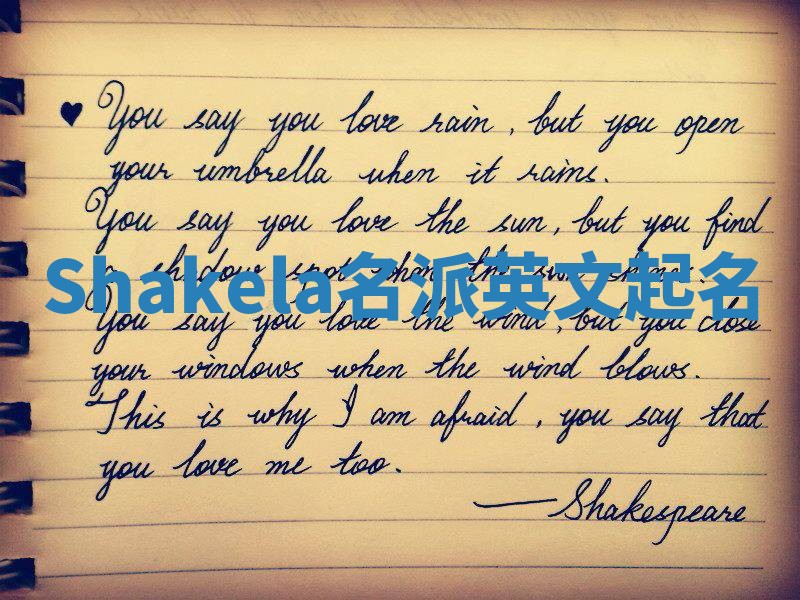 ♥ You say you love rain, but you open
your umbrella when it rains.
You say you love the sun, but you find
a shadow spot when the sun shines.
Shakela名派英文起名
You say you love the wind, but you close
your windows when the wind blows.
This is why I am afraid, you say that
you love me too.
—Shakespeare